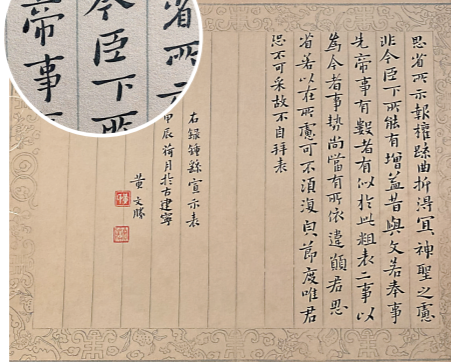 思省所示報權疏曲折得冝神聖之慮
非今臣下所能有增益昔與文若奉事
先帝事有數者有似於此粗表二事以
為今者事勢尚當有所依違願君思
省若以在所慮可不須復皃節度唯君
恐不可采故不自拜表
右録鍾繇宣示表
甲辰荷月於古建寧
黄文勝
省所示
今臣下所
帝事